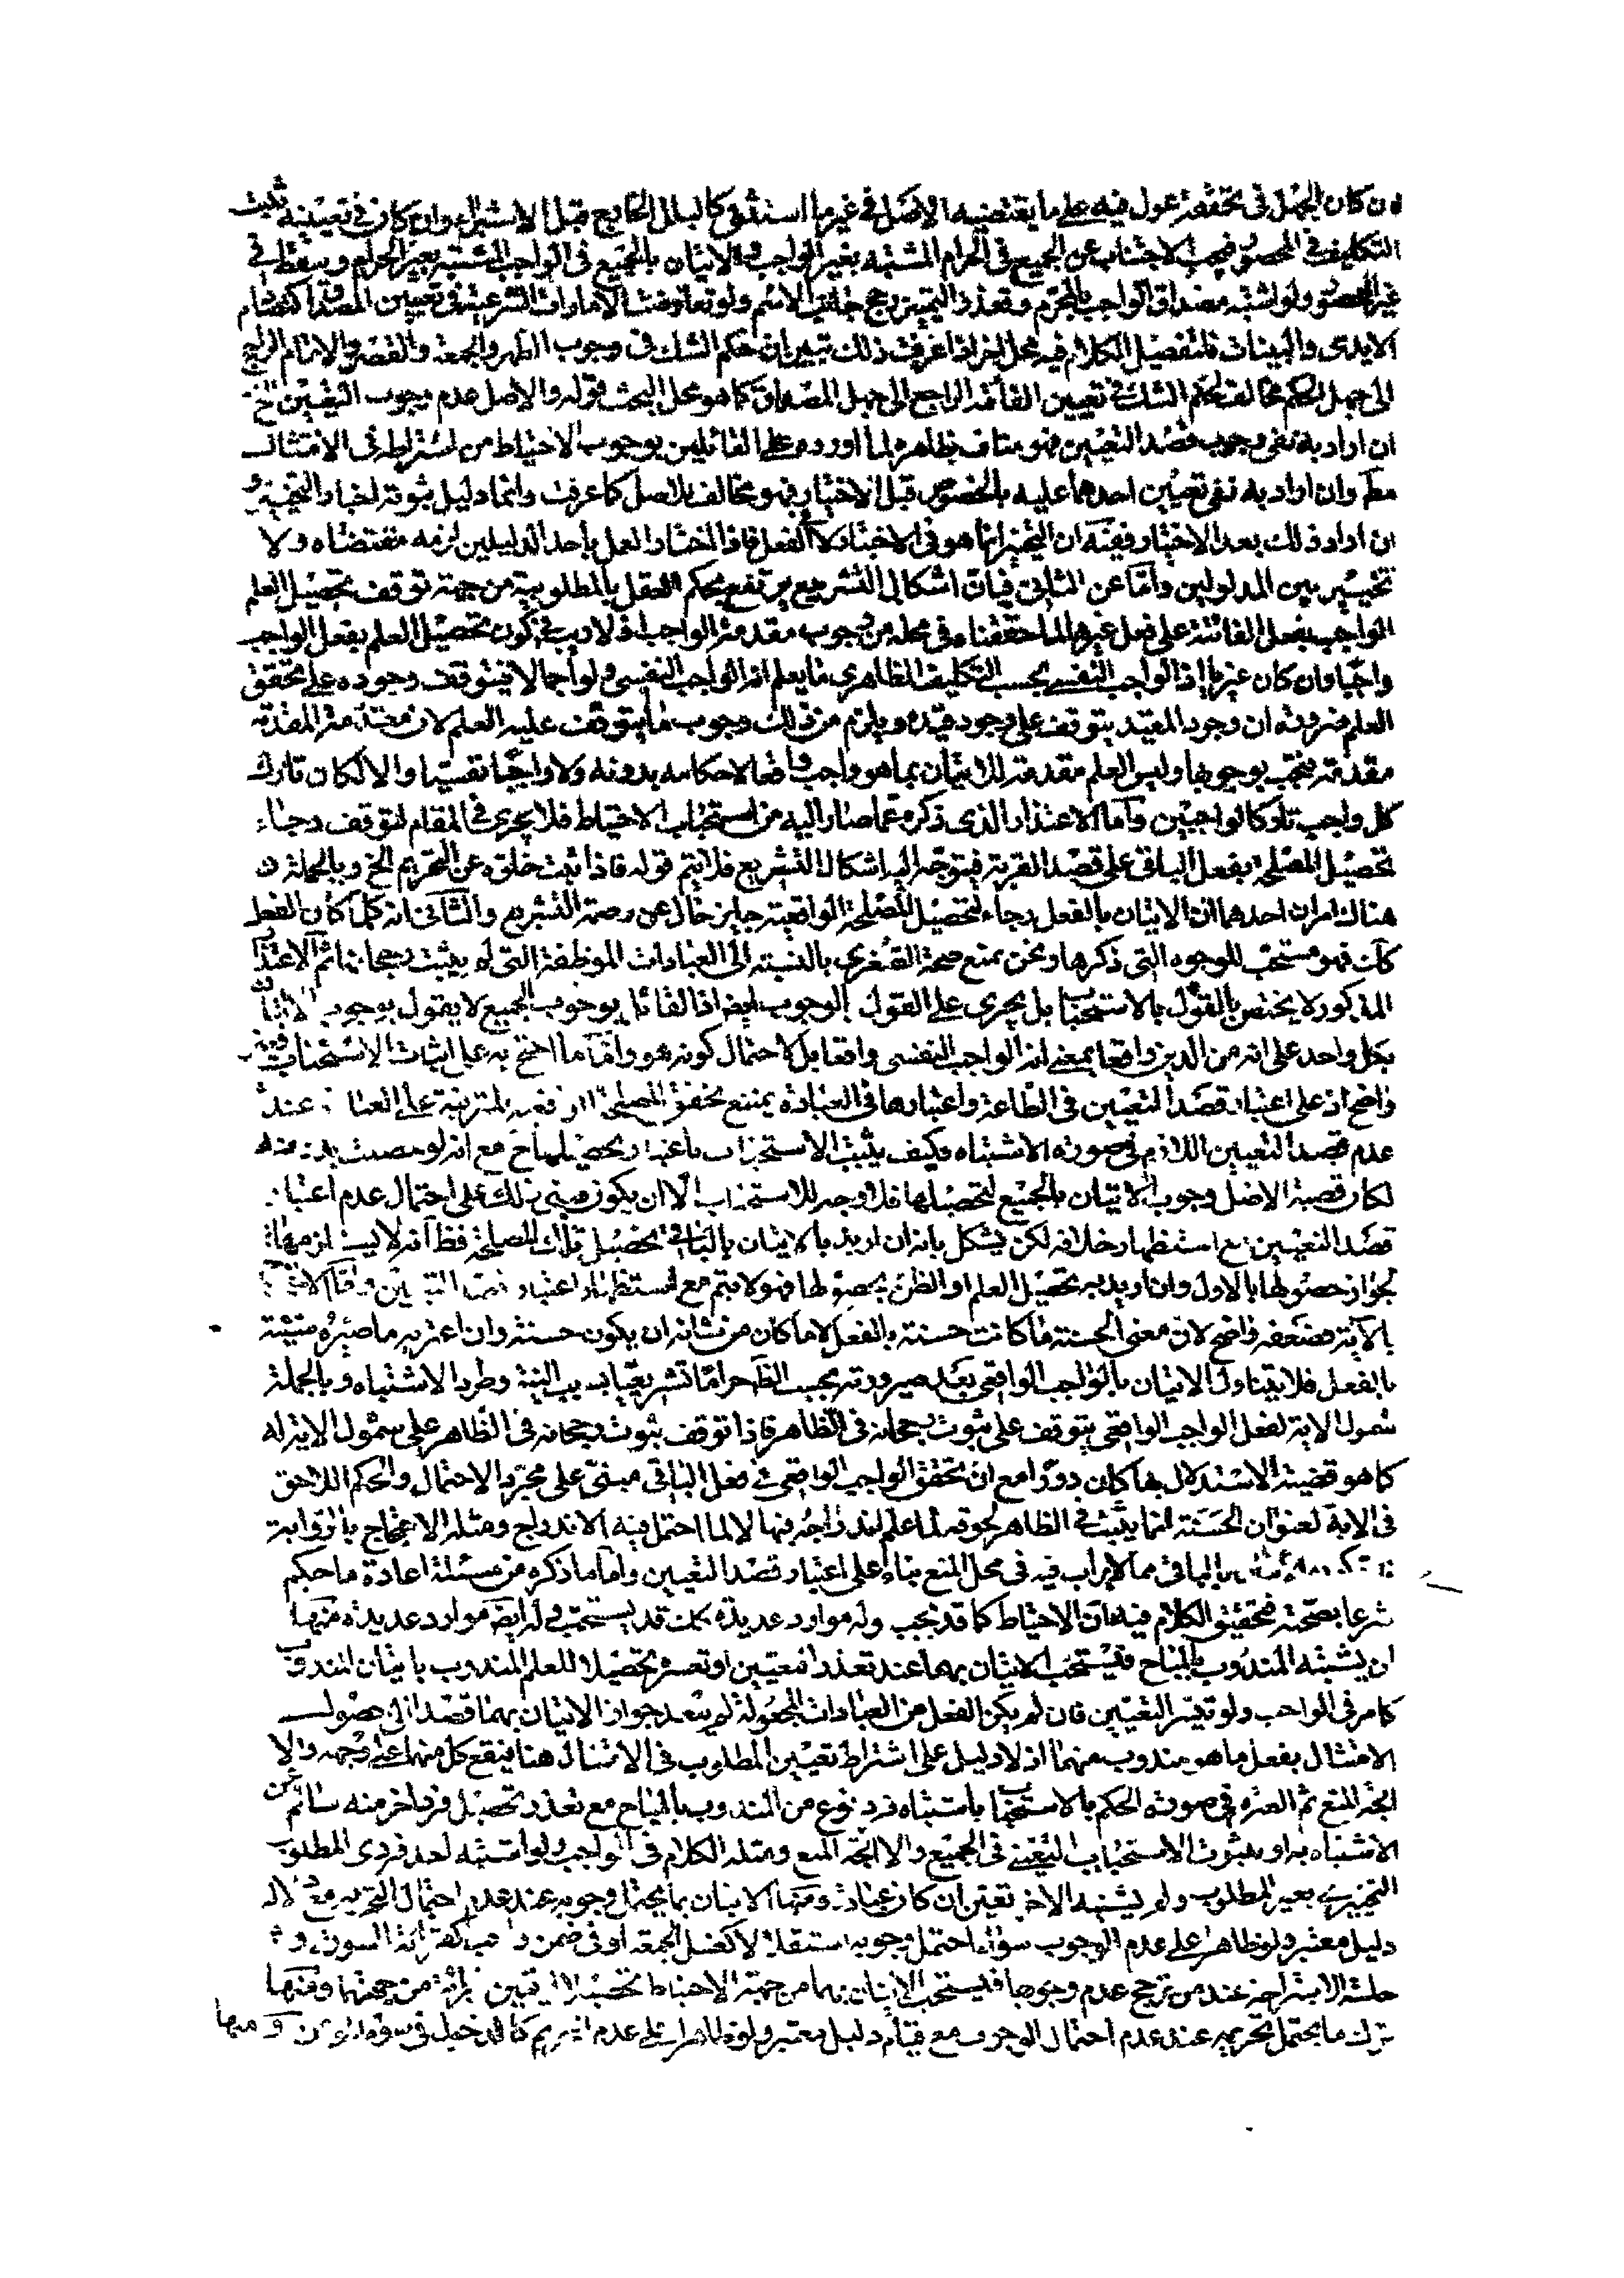 ان كان الجهل فى تحققه عول فيه على ما يقتضيه الاصل فى غير ما استثنى كالبلل الخارج قبل الاستبراء وان كان فى تعيينه يثبت
التكليف فى المحصور فيجب الاجتناب عن الجميع فى الحرام المشتبه بغير الواجب والاتيان بالجميع فى الواجب المشتبه بغير الحرام ويسقط فى
غير المحصور ولو اشتبه مصداق الواجب بالمحرم وتعذر التميز رجح جانب الاهم ولو تعارضت الامارات الشرعية فى تعيين المصداق كتصادم
الايدى والبينات فلتفصيل الكلام فيه محل اخر اذا عرفت ذلك تبين ان حكم الشك فى وجوب الظهر والجمعة والقصر والاتمام الراجع
الى جهل الحكم مخالف لحكم الشك فى تعيين الفائتة الراجع الى جهل المصداق كما هو محل البحث قوله والاصل عدم وجوب التعيين الخ
ان اراد به نفى وجوب قصد التعيين فهو مناف بظاهره لما اورده على القائلين بوجوب الاحتياط من اشتراطه فى الامتثال
مط وان اراد به نفى تعيين احدهما عليه بالخصوص قبل الاختيار فهو مخالف للاصل كما عرفت وانما دليل ثبوته اخبار التخيير و
ان اراد ذلك بعد الاختيار ففيه ان التخيير انما هو فى الاختيار لا الفعل فاذا اختار العمل باحد الدليلين لزمه مقتضاه ولا
تخيير بين المدلولين واما عن الثانى فبان اشكال التشريع يرتفع بحكم العقل بالمطلوبية من جهة توقف تحصيل العلم
الواجب بفعل الفائتة على فعل غيرها لما حققناه فى محله من وجوب مقدمة الواجب اذ لا ريب فى كون تحصيل العلم بفعل الواجب
واجبا وان كان غيريا اذ الواجب النفسى بحسب التكليف الظاهرى ما يعلم انه الواجب النفسى ولو اجمالا فيتوقف وجوده على تحقق
العلم ضرورة ان وجود المقيد يتوقف على وجود قيده ويلزم من ذلك وجوب ما يتوقف عليه العلم لان مقدمة المقدمة
مقدمة فتجب بوجوبها وليس العلم مقدمة للاتيان بما هو واجب واقعا لامكانه بدونه ولا واجبا نفسيا والا لكان تارك
كل واجب تاركا لواجبين واما الاعتذار الذى ذكره عما صار اليه من استحباب الاحتياط فلا يجرى فى المقام لتوقف رجاء
تحصيل المصلحة بفعل الباقى على قصد القربة فيتوجه اليه اشكال التشريع فلا يتم قوله فاذا ثبت خلوه عن التحريم الخ وبالجملة
هناك امران احدهما ان الاتيان بالفعل رجاء لتحصيل المصلحة الواقعية جايز خال عن وصمة التشريع والثانى انه كلما كان الفعل
كك فهو مستحب للوجوه التى ذكرها ونحن نمنع صحة الصغرى بالنسبة الى العبادات الموظفة التى لم يثبت رجحانها ثم الاعتذار
المذكور لا يختص بالقول بالاستحباب بل يجرى على القول بالوجوب ايضا اذ القائل بوجوب الجميع لا يقول بوجوب الاتيان
بكل واحد على انه من الدين واقعا بمعنى انه الواجب النفسى واقعا بل لاحتمال كونه هو واما ما احتج به على اثبات الاستحباب فضعفه
واضح اذ على اعتبار قصد التعيين فى الطاعة واعتبارها فى العبادة يمتنع تحقق المصلحة الواقعية المترتبة على العبادة عند
عدم قصد التعيين اللازم فى صورة الاشتباه فكيف يثبت الاستحباب باعتبار تحصيلها ح مع انه لو حصلت بدونه
لكان قضية الاصل وجوب الاتيان بالجميع لتحصيلها فلا وجه للاستحباب الا ان يكون مبنى ذلك على احتمال عدم اعتبار
قصد التعيين مع استظهار خلافه لكن يشكل بانه ان اريد بالاتيان بالباقى تحصيل تلك المصلحة فظ انه لا يستلزمها
لجواز حصولها بالاول وان اريد به تحصيل العلم او الظن بحصولها فهو لا يتم مع استظهار اعتبار قصد التعيين واما
بالاية فضعفه واضح لان معنى الحسنة ما كانت حسنة بالفعل لا ما كان من شانه ان يكون حسنة وان اعتريه ما صيره سيئة
بالفعل فلا يتناول الاتيان بالواجب الواقعى بعد صيرورته بحسب الظ حراما تشريعيا بسبب النية وطرو الاشتباه وبالجملة
شمول الاية لفعل الواجب الواقعى يتوقف على ثبوت رجحانه فى الظاهر فاذا توقف ثبوت رجحانه فى الظاهر على شمول الاية له
كما هو قضية الاستدلال بها كان دورا مع ان تحقق الواجب الواقعى فى فعل الباقى مبنى على مجرد الاحتمال والحكم اللاحق
فى الاية لعنوان الحسنة انما يثبت فى الظاهر لحوقه لما علم اندراجه فيها لا لما احتمل فيه الاندراج ومثله الاحتجاج بالرواية
بالباقى مما لا يراب فيه فى محل المنع بناء على اعتبار قصد التعيين واما ما ذكره من مسئلة اعادة ما حكم
شرعا بصحته فتحقيق الكلام فيه ان الاحتياط كما قد يجب وله موارد عديدة كك قد يستحب وله ايضا موارد عديدة منها
ان يشتبه المندوب بالمباح فيستحب الاتيان بهما عند تعذر التعيين او تعسره تحصيلا للعلم المندوب باتيان المندوب
كما مر فى الواجب ولو تيسر التعيين فان لم يكن الفعل من العبادات المجعولة لم يبعد جواز الاتيان بهما قصدا الى حصول
الامتثال بفعل ما هو مندوب منهما اذ لا دليل على اشتراط تعيين المطلوب فى الامتثال هنا فيقع كل منهما على وجهه والا
اتجه المنع ثم العبرة فى صورة الحكم بالاستحباب باشتباه فرد نوع من المندوب بالمباح مع تعذر تحصيل فرد اخر منه سالم عن
الاشتباه به او بثبوت الاستحباب التعيينى فى الجميع والا اتجه المنع ومثله الكلام فى الواجب ولو اشتبه احد فردى المطلوب
التخييرى بغير المطلوب ولم يشتبه الاخر تعين ان كان عبادة ومنها الاتيان بما يحتمل وجوبه عند عدم احتمال التحريم مع دلالة
دليل معتبر ولو ظاهرا على عدم الوجوب سواء احتمل وجوبه استقلالا كغسل الجمعة او فى ضمن واجب كقرائة السورة و
جلسة الاستراحة عند من ترجح عدم وجوبها فيستحب الاتيان بهما من جهة الاحتياط تحصيلا ليقين برائة من جهتها ومنها
ترك ما يحتمل تحريمه عند عدم احتمال الوجوب مع قيام دليل معتبر ولو ظاهرا على عدم التحريم كالدخول فى سوم المؤمن ومنها